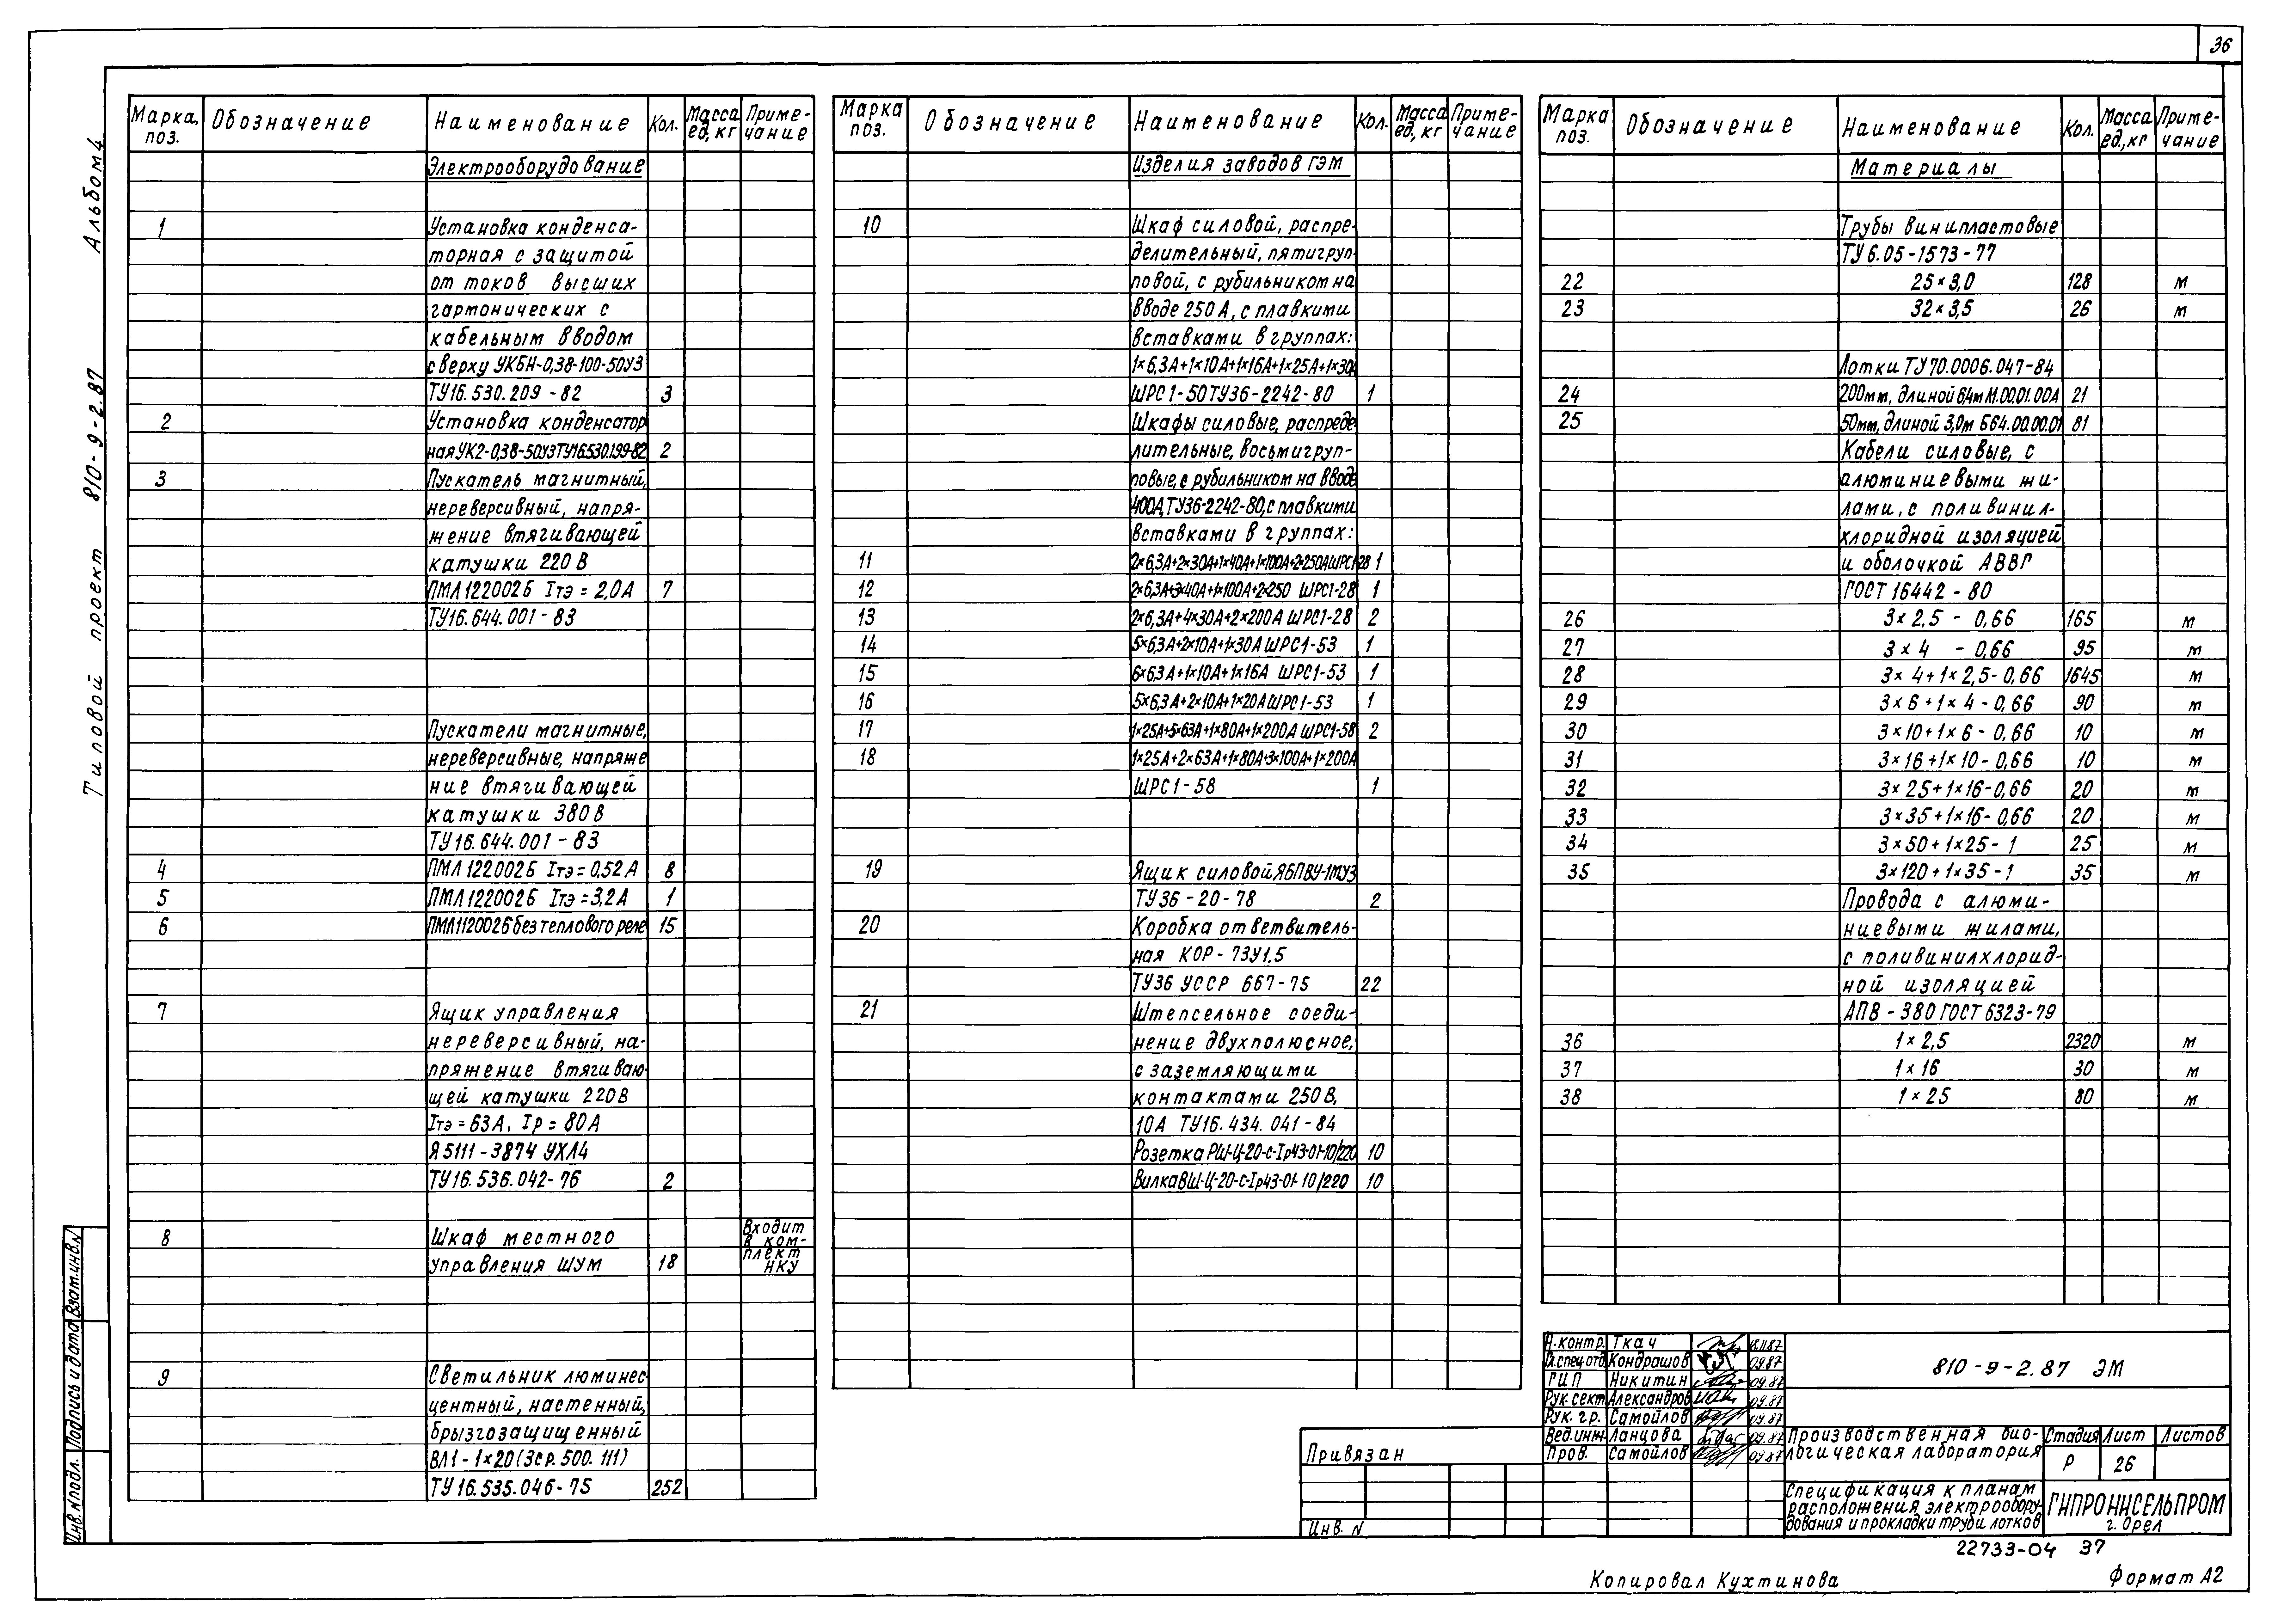 36
Альбом 4
Типовой проект 810-9-2.87
Марка, поз. Обозначение Наименование Кол. Масса ед, кг Приме-чание
Электрооборудование
1 Установка конденса-
торная с защитой
от токов высших
гармонических с
кабельным вводом
сверху УКБН-0,38-100-50У3
ТУ16.530.209-82 3
2 Установка конденсатор
ная УК2-0,38-50У3 ТУ16.530.199-82 2
3 Пускатель магнитный,
нереверсивный, напря-
жение втягивающей
катушки 220 В
ПМЛ122002Б Iтэ = 2,0 А 7
ТУ16.644.001-83
Пускатели магнитные,
нереверсивные, напряже
ние втягивающей
катушки 380 В
ТУ16.644.001-83
4 ПМЛ122002Б Iтэ = 0,52 А 8
5 ПМЛ122002Б Iтэ = 3,2 А 1
6 ПМЛ112002Б без теплового реле 15
7 Ящик управления
нереверсивный, на-
пряжение втягиваю-
щей катушки 220 В
Iтэ = 63 А, Iр = 80 А
Я5111-3874 УХЛ4
ТУ16.536.042-76 2
8 Шкаф местного
управления ШУМ 18
Входит
в ком-
плект
НКУ
9 Светильник люминес
центный, настенный,
брызгозащищенный
ВЛ1-1×20 (3ср.500.111)
ТУ16.535.046-75 252
Марка поз. Обозначение Наименование Кол. Масса ед, кг Приме-чание
Изделия заводов ГЭМ
10 Шкаф силовой, распре-
делительный, пятигруп-
повой, с рубильником на
вводе 250 А, с плавкими
вставками в группах:
1×6,3А+1×10А+1×16А+1×25А+1×30А
ШРС1-50 ТУ36-2242-80 1
Шкафы силовые, распреде
лительные, восьмигруп-
повые, с рубильником на вводе
400А, ТУ36-2242-80, с плавкими
вставками в группах:
11 2×6,3А+2×30А+1×40А+1×100А+2×250А ШРС1-28 1
12 2×6,3А+3×40А+1×100А+2×250 ШРС1-28 1
13 2×6,3А+4×30А+2×200А ШРС1-28 2
14 5×6,3А+2×10А+1×30А ШРС1-53 1
15 6×6,3А+1×10А+1×16А ШРС1-53 1
16 5×6,3А+2×10А+1×20А ШРС1-53 1
17 1×25А+5×63А+1×80А+1×200А ШРС1-58 2
18 1×25А+2×63А+1×80А+3×100А+1×200А
ШРС1-58 1
19 Ящик силовой ЯБПВУ-1МУ3
ТУ36-20-78 2
20 Коробка ответвитель-
ная КОР-73У1,5
ТУ36 УССР 667-75 22
21 Штепсельное соеди-
нение двухполюсное,
с заземляющими
контактами 250 В,
10А ТУ16.434.041-84
Розетка РШ-Ц-20-С-Iр43-01-10/220 10
Вилка ВШ-Ц-20-С-Iр43-01-10/220 10
Марка поз. Обозначение Наименование Кол. Масса ед, кг Приме-чание
Материалы
Трубы винипластовые
ТУ 6.05-1573-77
22 25×3,0 128 м
23 32×3,5 26 м
Лотки ТУ70.0006.047-84
24 200мм, длиной 6,4м М.00.01.00А 21
25 50мм, длиной 3,0м Б64.00.00.01 81
Кабели силовые, с
алюминиевыми жи-
лами, с поливинил-
хлоридной изоляцией
и оболочкой АВВГ
ГОСТ 16442-80
26 3×2,5 - 0,66 165 м
27 3×4 - 0,66 95 м
28 3×4+1×2,5-0,66 1645 м
29 3×6+1×4-0,66 90 м
30 3×10+1×6-0,66 10 м
31 3×16+1×10-0,66 10 м
32 3×25+1×16-0,66 20 м
33 3×35+1×16-0,66 20 м
34 3×50+1×25-1 25 м
35 3×120+1×35-1 35 м
Провода с алюми-
ниевыми жилами,
с поливинилхлорид-
ной изоляцией
АПВ-380 ГОСТ 6323-79
36 1×2,5 2320 м
37 1×16 30 м
38 1×25 80 м
Н.контр. Ткач 18.11.87
Гл.спец.отд Кондрашов 09.87
ГИП Никитин 09.87
Рук.сект. Александров 09.87
Рук.гр. Самойлов 09.87
Вед.инж. Ланцова 09.87
Пров. Самойлов 09.87
810-9-2.87 ЭМ
Производственная био-
логическая лаборатория
Стадия Лист Листов
Р 26
Спецификация к планам
расположения электрообору-
дования и прокладки труб и лотков
ГИПРОНИСЕЛЬПРОМ
г. Орел
Привязан
Инв. N
Инв.N подл. Подпись и дата Взам.инв.N
22733-04 37
Копировал Кухтинова
Формат А2